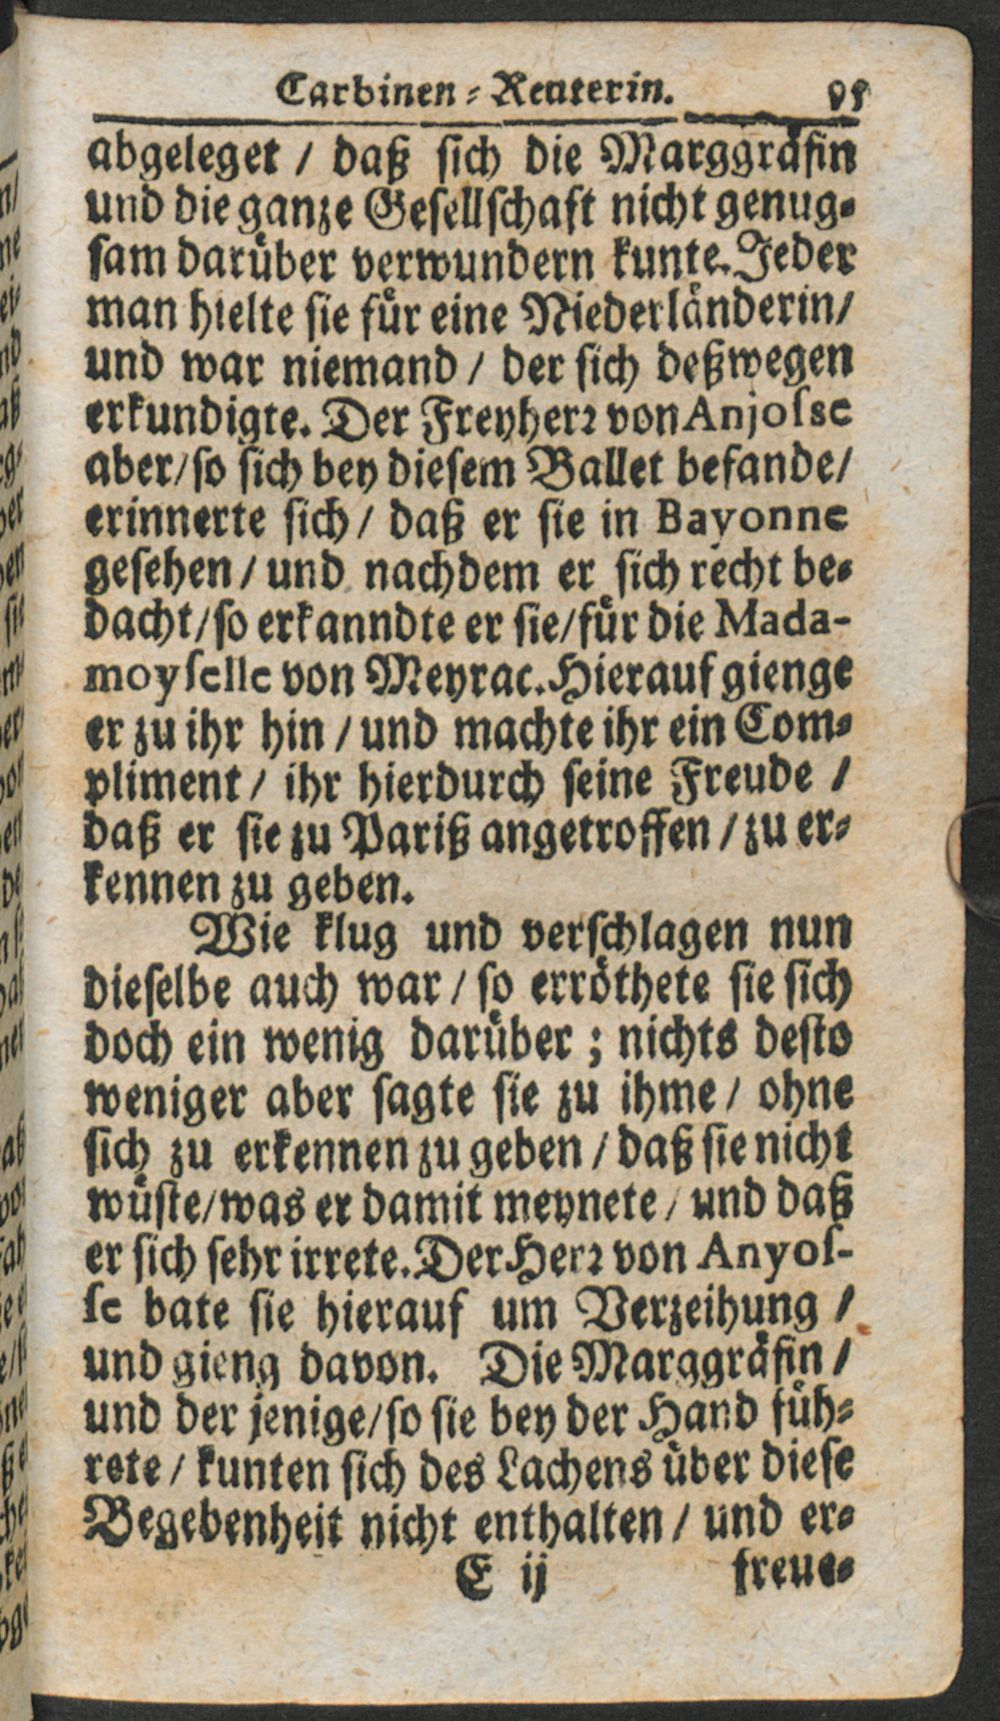 Carbinen⸗Reuterin. 95
abgeleget / daß sich die Marggräfin
und die ganze Gesellschaft nicht genug⸗
sam darüber verwundern kunte. Jeder
man hielte sie für eine Niederländerin/
und war niemand / der sich deßwegen
erkundigte. Der Freyherr von Anjosse
aber/so sich bey diesem Ballet befande/
erinnerte sich / daß er sie in Bayonne
gesehen / und nachdem er sich recht be⸗
dacht/so erkanndte er sie/für die Mada-
moyselle von Meyrac. Hierauf gienge
er zu ihr hin / und machte ihr ein Com⸗
pliment / ihr hierdurch seine Freude /
daß er sie zu Pariß angetroffen / zu er⸗
kennen zu geben.
Wie klug und verschlagen nun
dieselbe auch war / so erröthete sie sich
doch ein wenig darüber ; nichts desto
weniger aber sagte sie zu ihme / ohne
sich zu erkennen zu geben / daß sie nicht
wüste/was er damit meynete / und daß
er sich sehr irrete. Der Herr von Anyos-
se bate sie hierauf um Verzeihung /
und gieng davon. Die Marggräfin /
und der jenige/so sie bey der Hand füh⸗
rete / kunten sich des Lachens über diese
Begebenheit nicht enthalten / und er⸗
E ij freue⸗